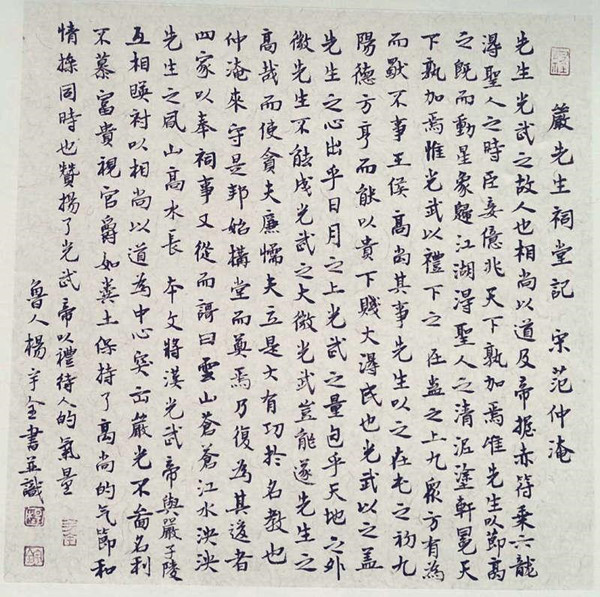 嚴先生祠堂記 宋范仲淹
先生光武之故人也相尚以道及帝握赤符乘六龍
得聖人之時臣妾億兆天下孰加焉惟先生以節高
之既而動星象歸江湖得聖人之清泥塗軒冕天
下孰加焉惟光武以禮下之 在蠱之上九眾方有為
而獨不事王侯高尚其事先生以之在屯之初九
陽德方亨而能以貴下賤大得民也光武以之蓋
先生之心出乎日月之上光武之量包乎天地之外
微先生不能成光武之大微光武豈能遂先生之
高哉而使貪夫廉懦夫立是大有功於名教也
仲淹來守是邦始構堂而奠焉乃復為其後者
四家以奉祠事又從而歌曰雲山蒼蒼江水泱泱
先生之風山高水長 本文將漢光武帝與嚴子陵
互相映衬以相尚以道為中心突出嚴光不圖名利
不慕富貴視官爵如糞土保持了高尚的气節和
情操同時也贊揚了光武帝以禮待人的氣量
魯人楊宇全書並識